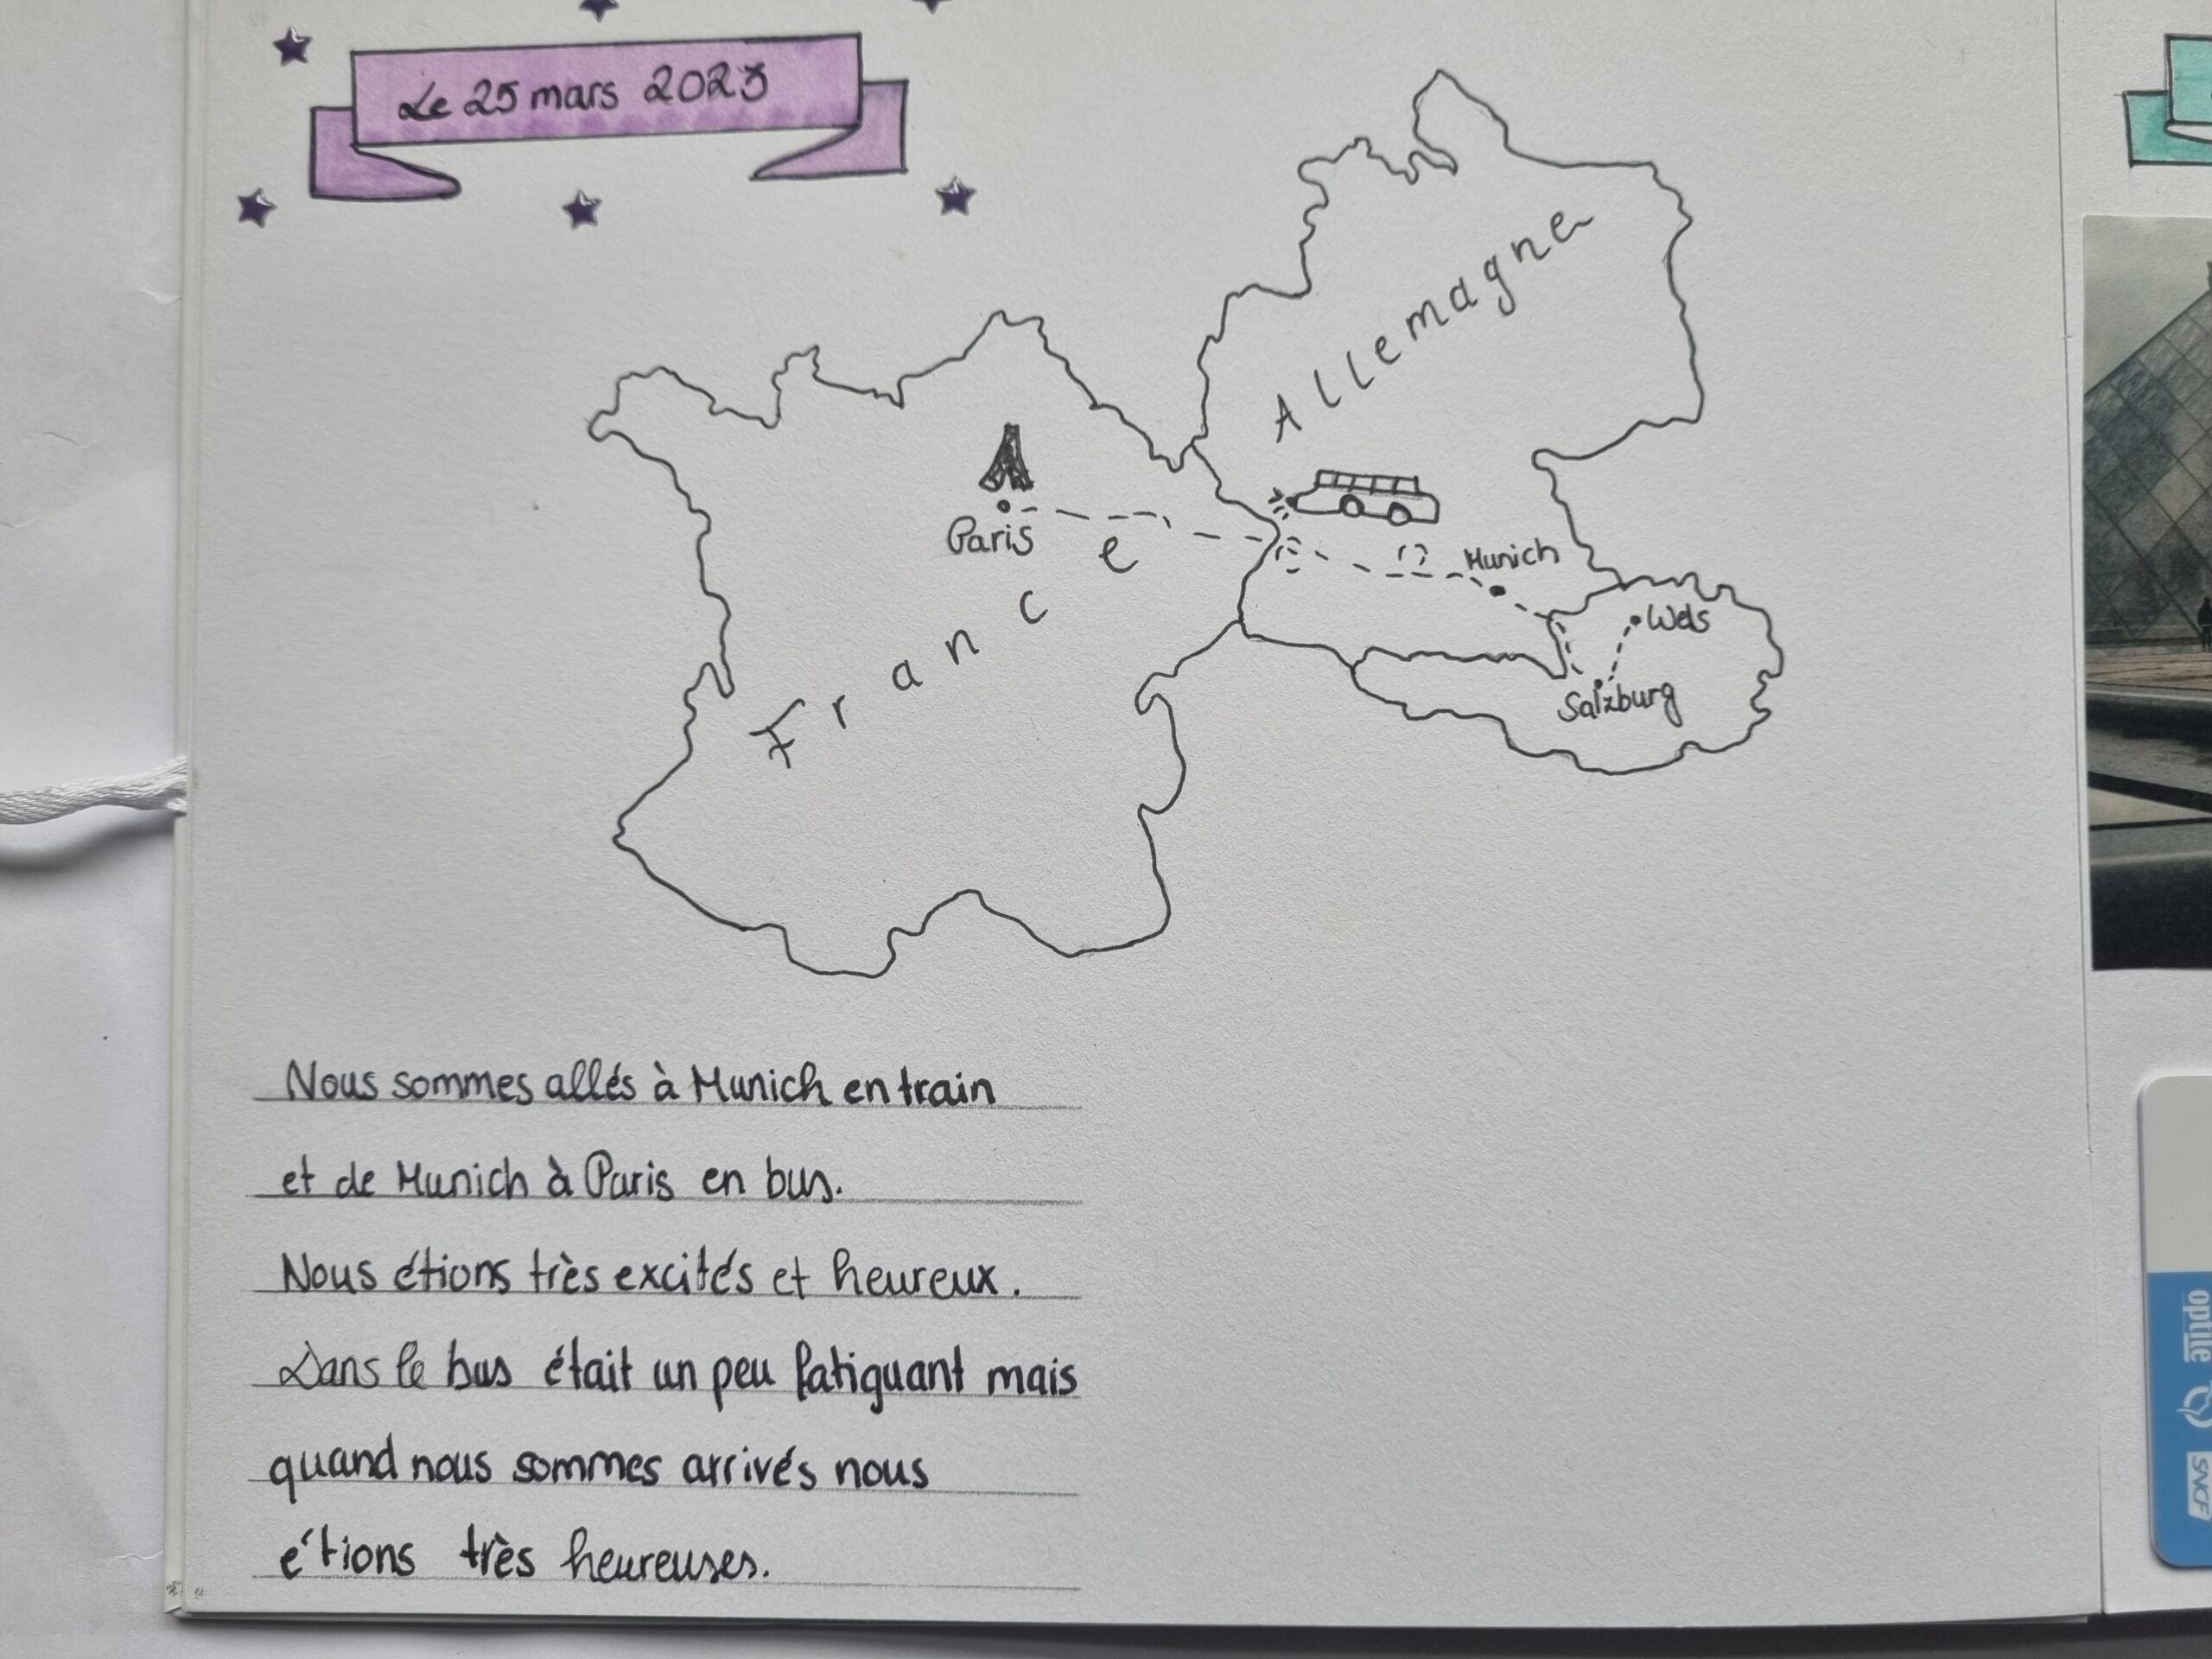 Le 25 mars 2023
Allemagne
Paris
France
Munich
Wels
Salzburg
Nous sommes allés à Munich en train
et de Munich à Paris en bus.
Nous étions très excités et heureux.
Dans le bus était un peu fatiguant mais
quand nous sommes arrivés nous
étions très heureuses.
optile
SNCF